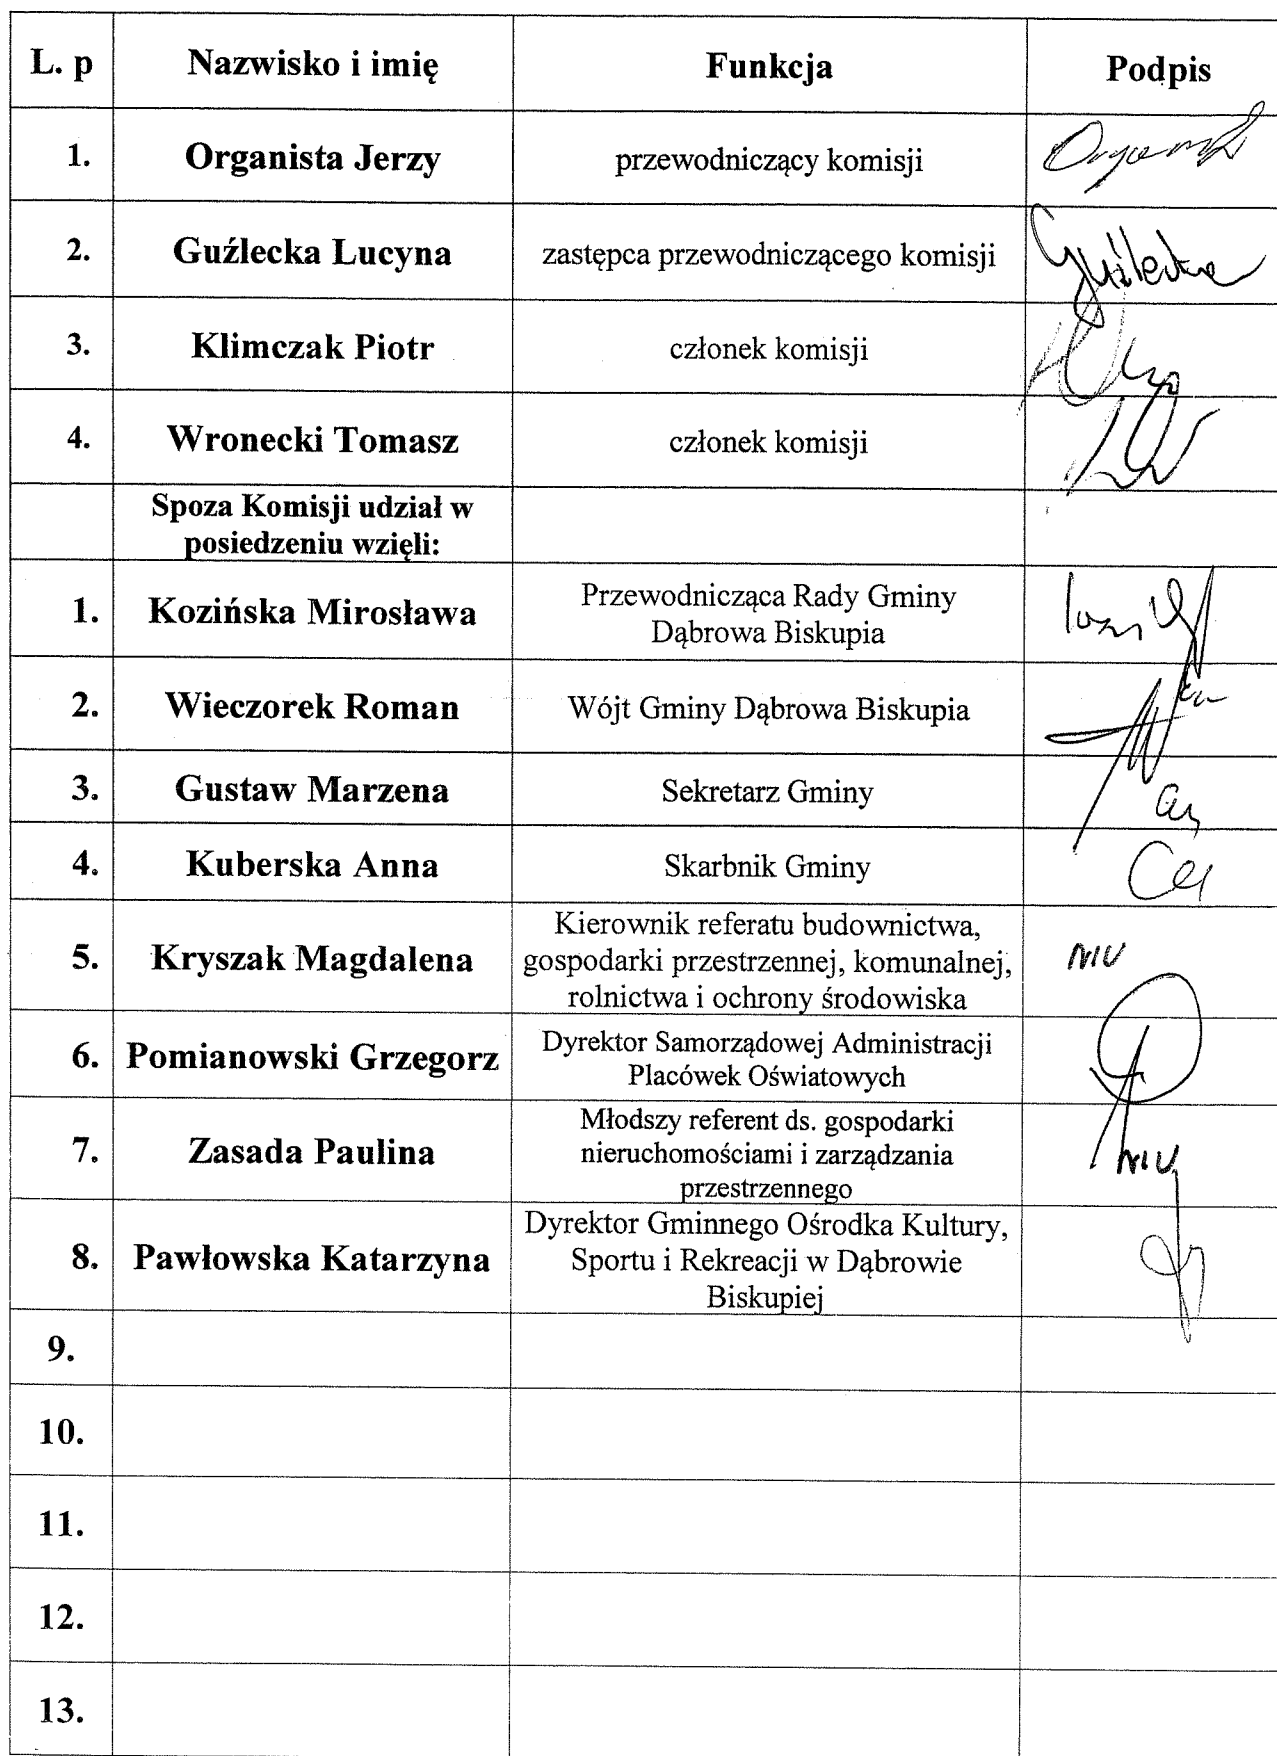 L. p Nazwisko i imię Funkcja Podpis
1. Organista Jerzy przewodniczący komisji
2. Guźlecka Lucyna zastępca przewodniczącego komisji Guźlecka
3. Klimczak Piotr członek komisji
4. Wronecki Tomasz członek komisji
Spoza Komisji udział w
posiedzeniu wzięli:
1. Kozińska Mirosława Przewodnicząca Rady Gminy
Dąbrowa Biskupia
2. Wieczorek Roman Wójt Gminy Dąbrowa Biskupia
3. Gustaw Marzena Sekretarz Gminy
4. Kuberska Anna Skarbnik Gminy
5. Kryszak Magdalena Kierownik referatu budownictwa,
gospodarki przestrzennej, komunalnej,
rolnictwa i ochrony środowiska
6. Pomianowski Grzegorz Dyrektor Samorządowej Administracji
Placówek Oświatowych
7. Zasada Paulina Młodszy referent ds. gospodarki
nieruchomościami i zarządzania
przestrzennego
8. Pawłowska Katarzyna Dyrektor Gminnego Ośrodka Kultury,
Sportu i Rekreacji w Dąbrowie
Biskupiej
9.
10.
11.
12.
13.